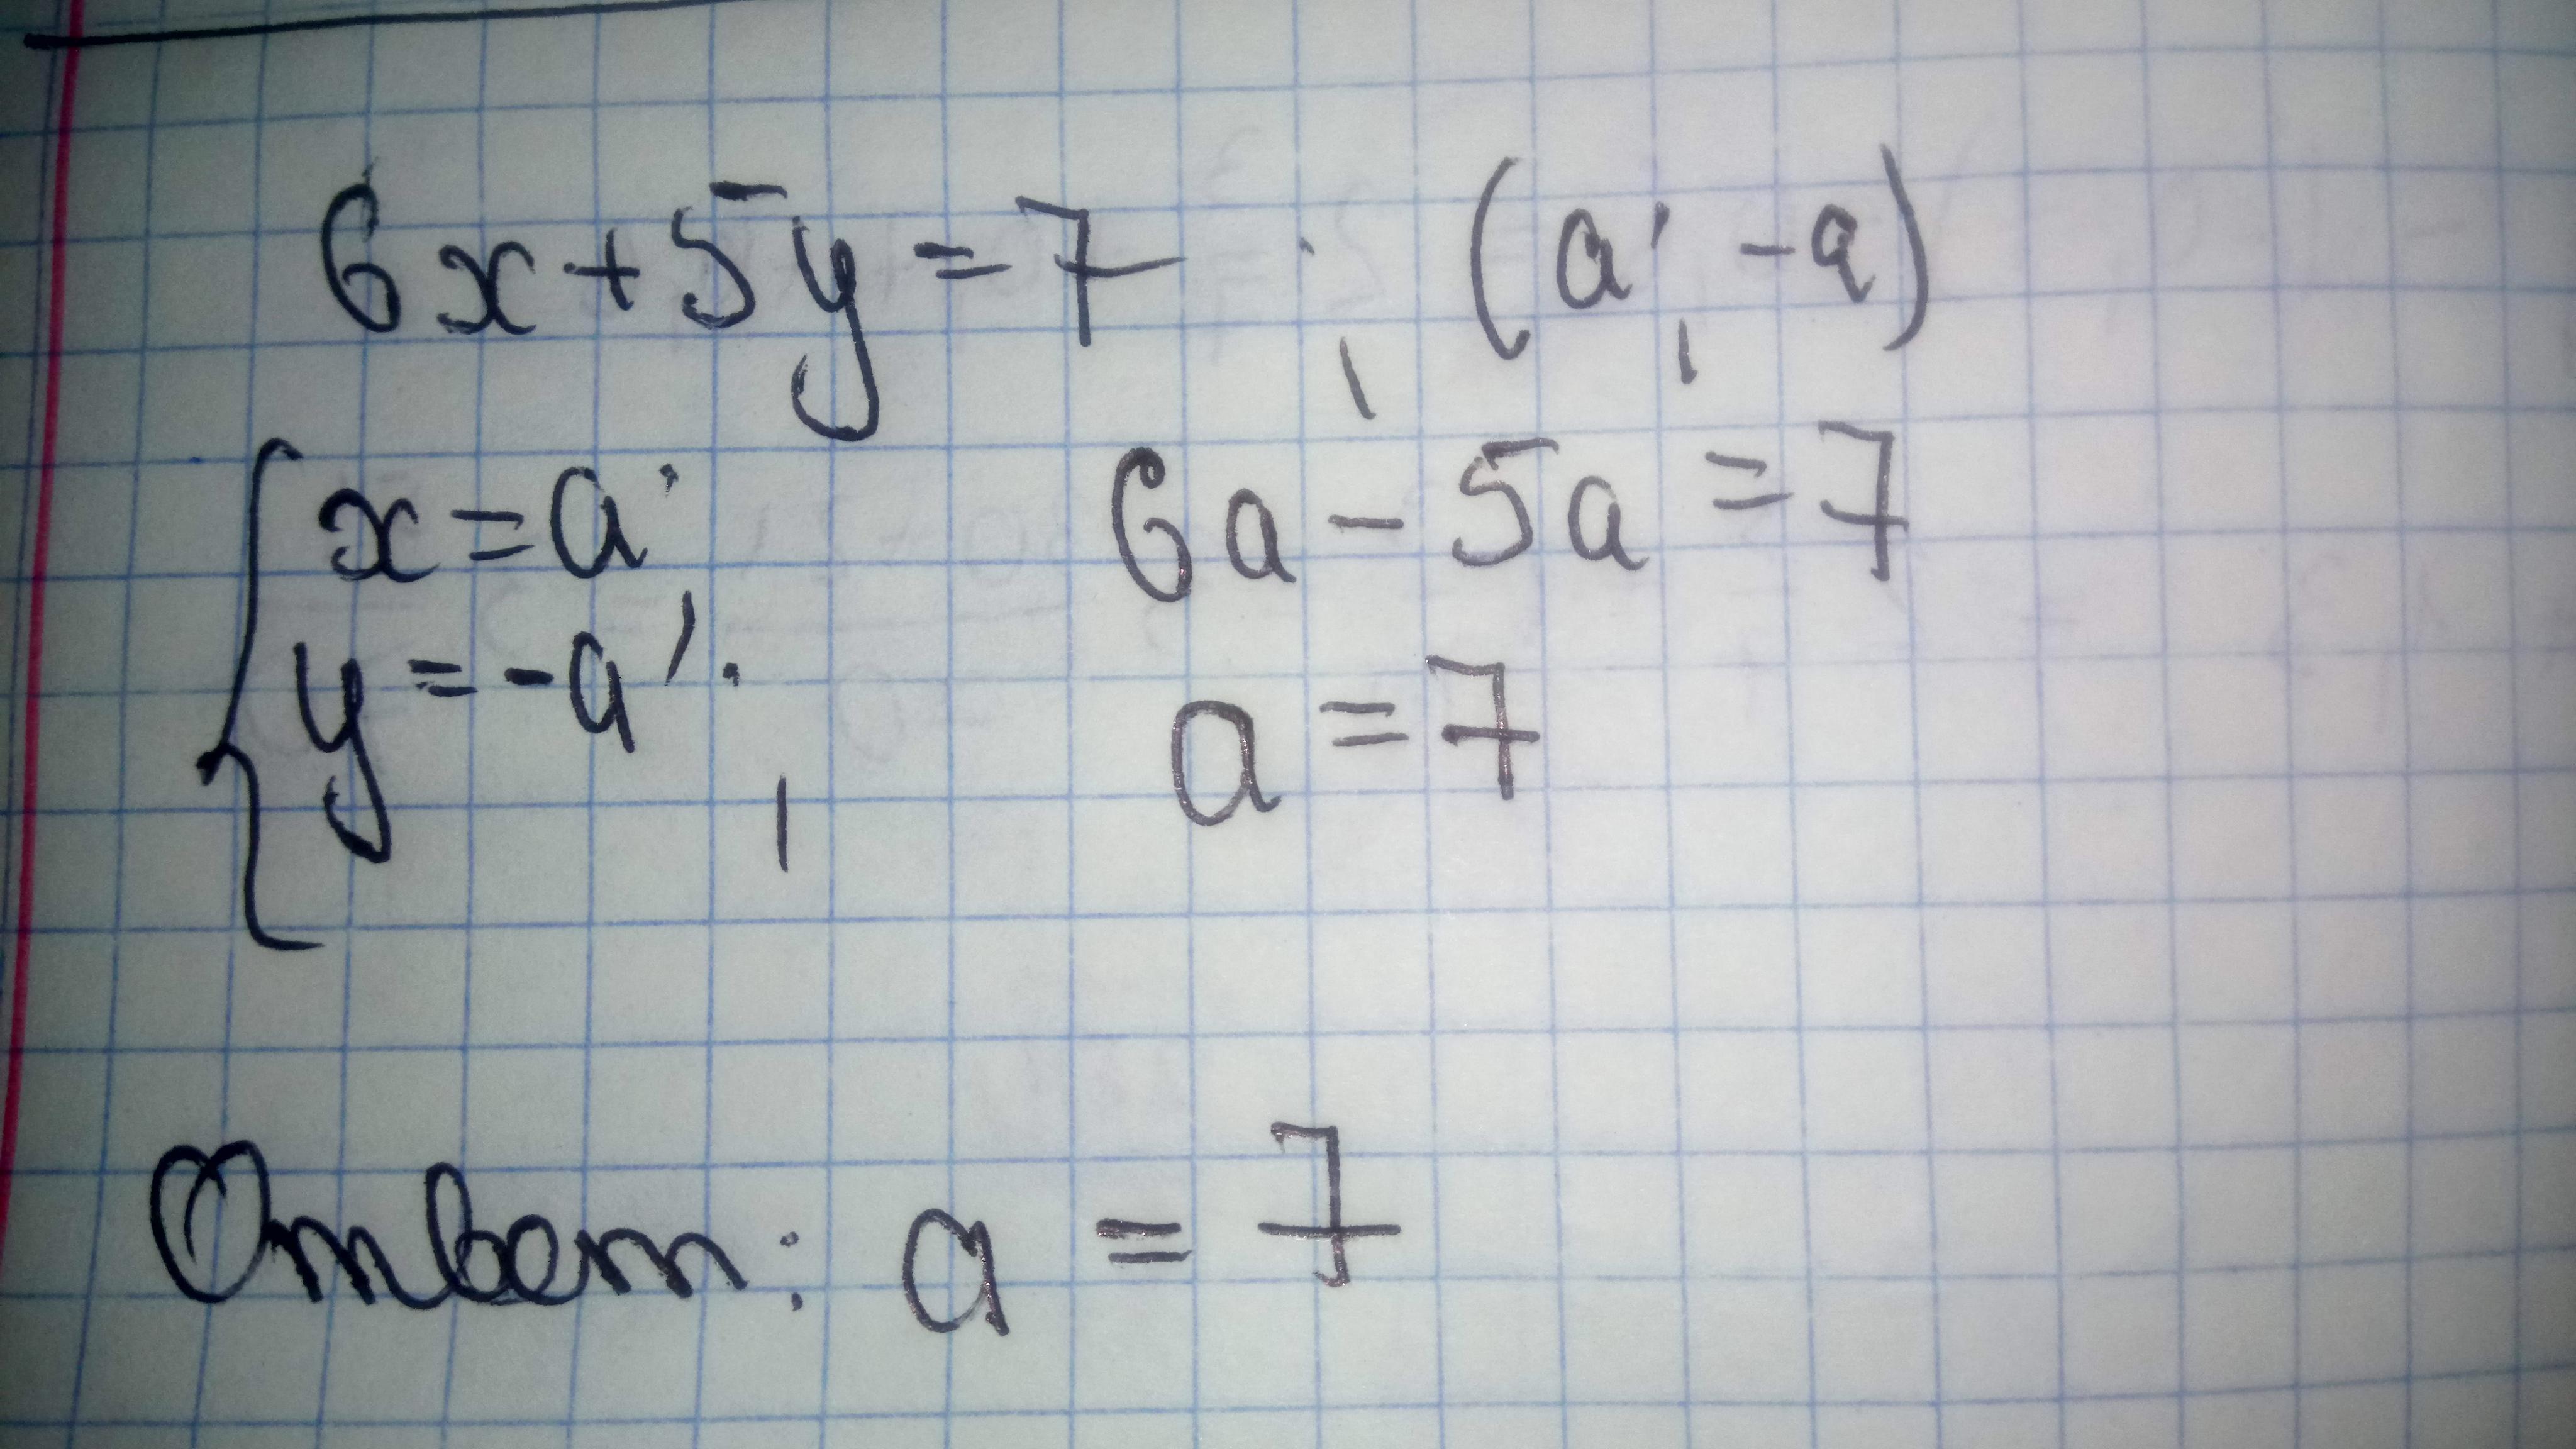 6x+5y=7; (a; -a)
{ x=a; 6a-5a=7
y=-a; a=7
Ответ: a=7